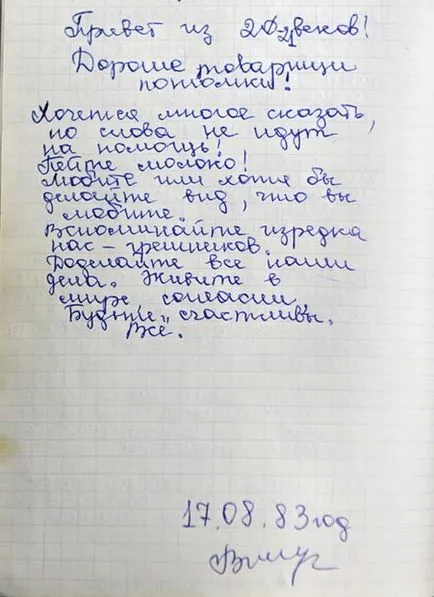 Привет из 20-21 веков!
Дорогие товарищи
потомки!
Хочется многое сказать,
но слова не идут
на помощь!
Пейте молоко!
Любите или хотя бы
делайте вид, что вы
любите.
Вспоминайте изредка
нас – грешников.
Доделайте все наши
дела. Живите в
мире согласии.
Будьте счастливы.
Всё.
17.08.83 год